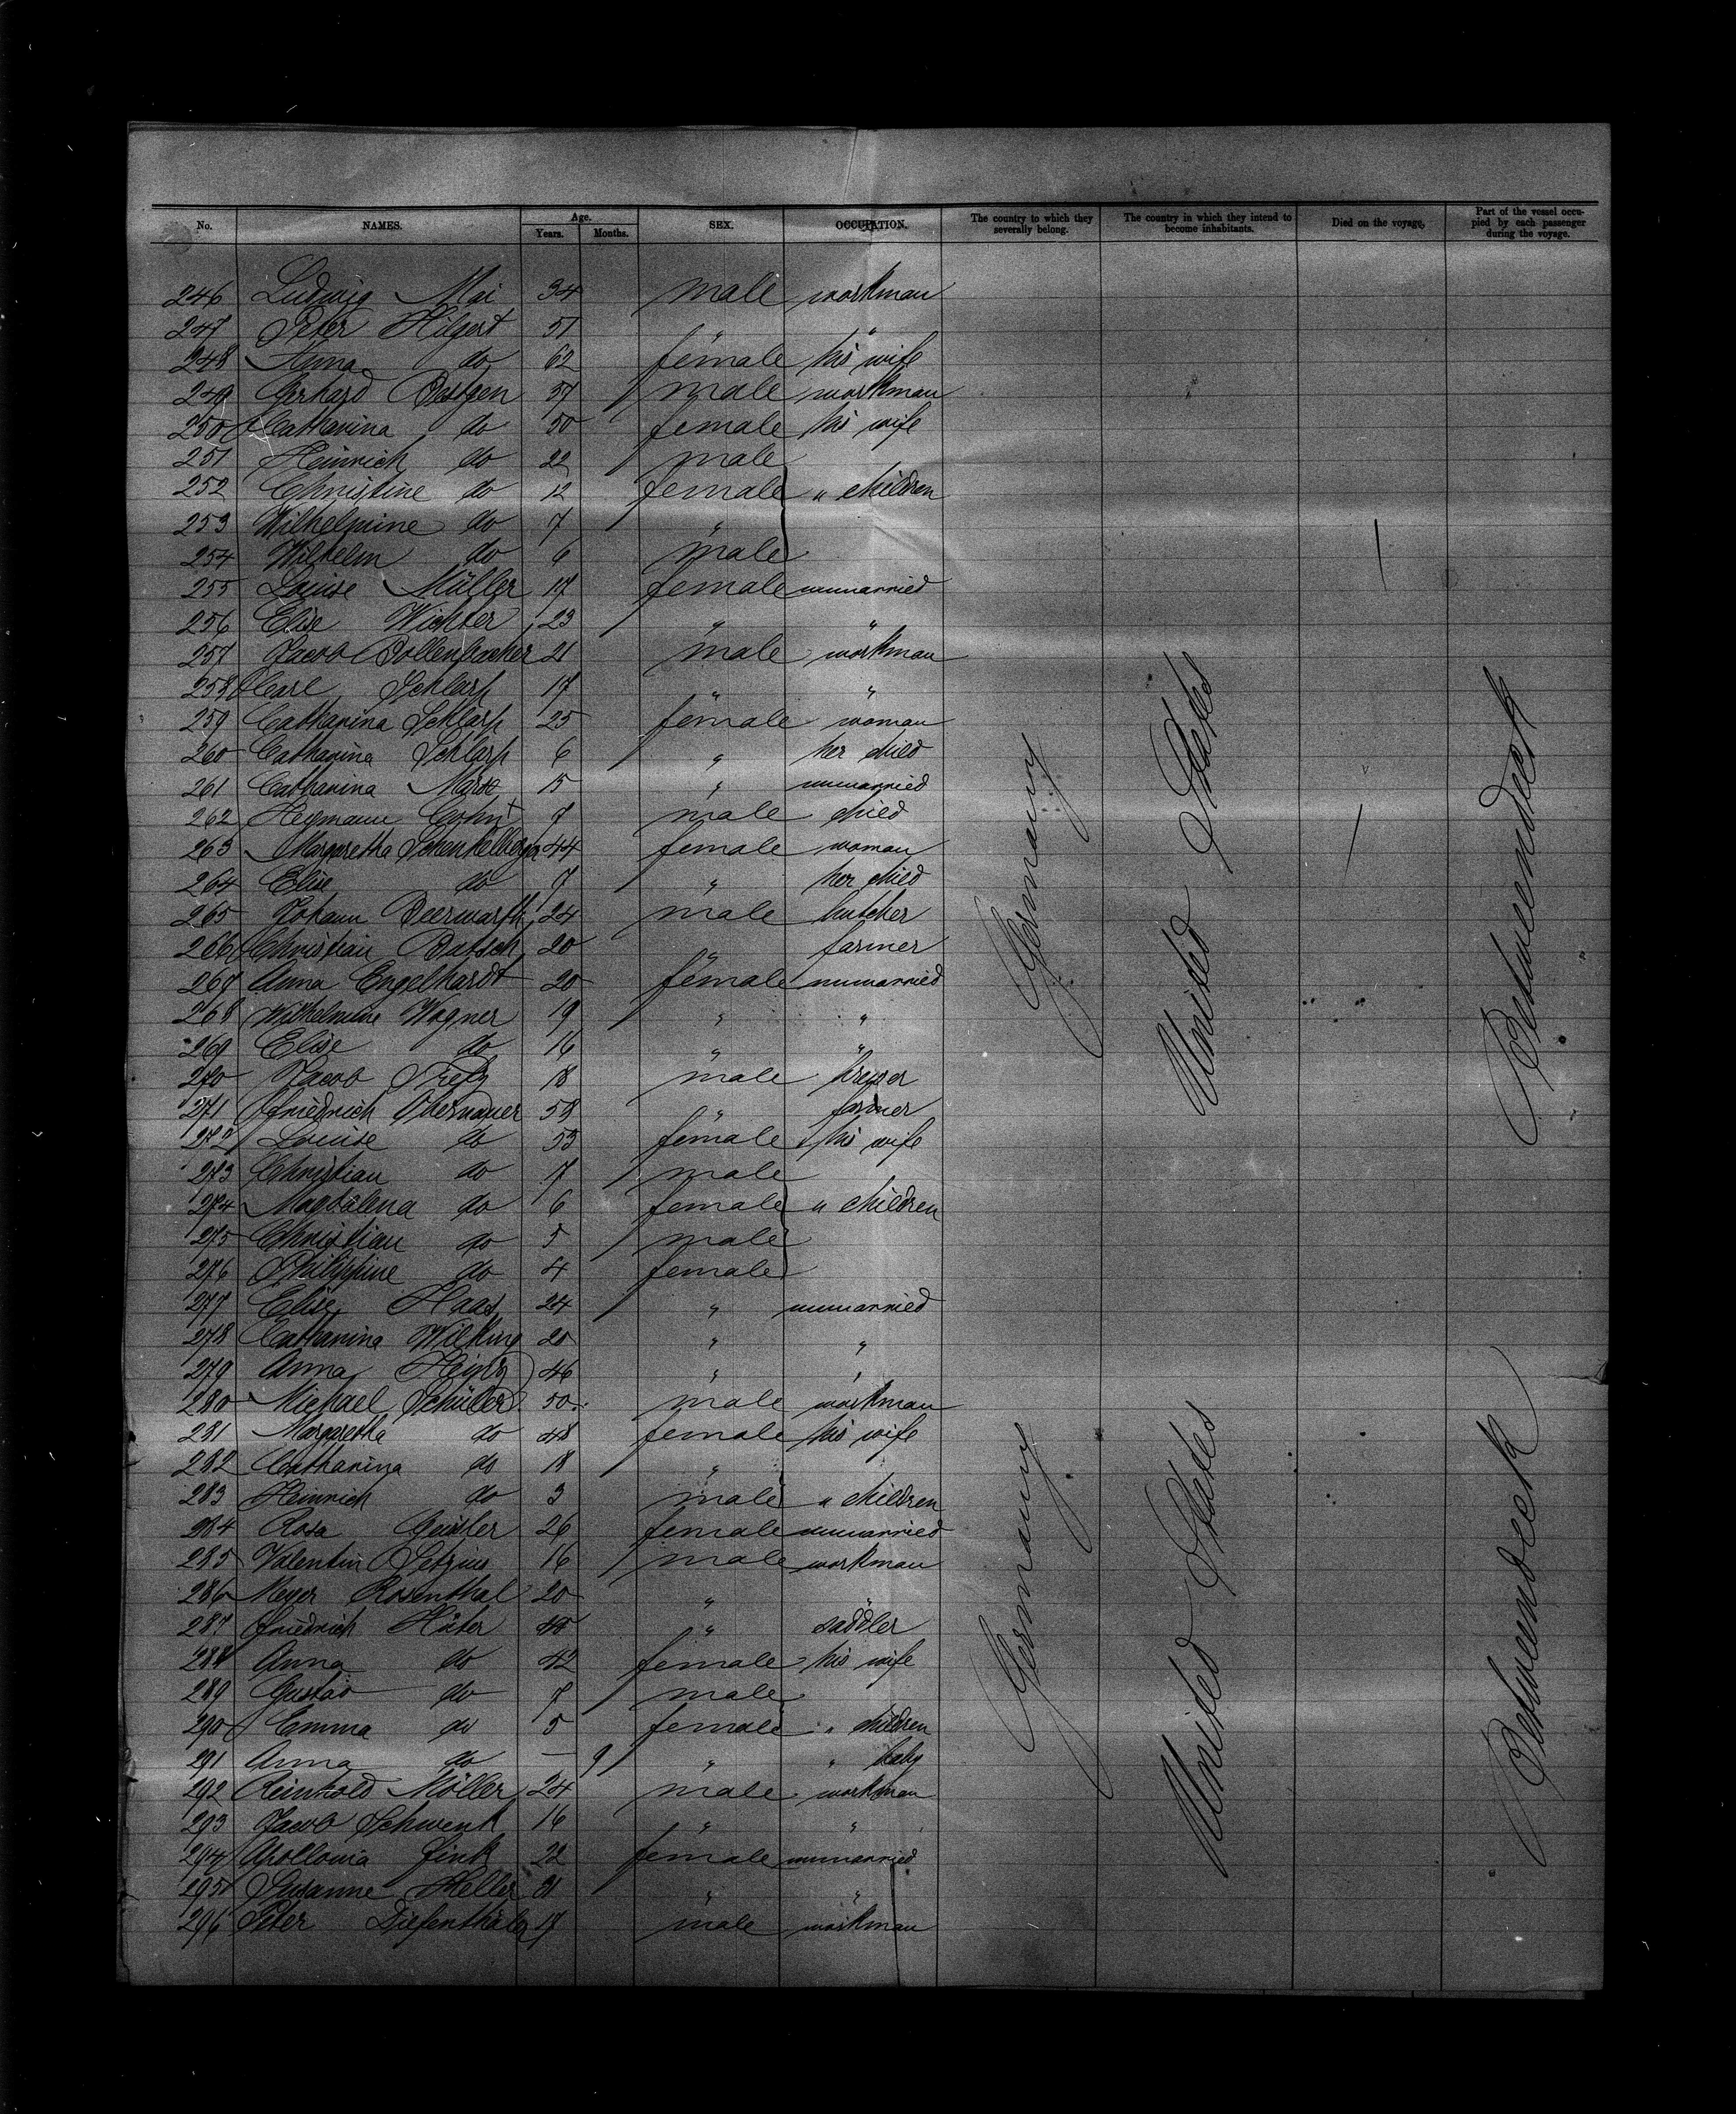 No. NAMES. Age. Years. Months. SEX. OCCUPATION. The country to which they severally belong. The country in which they intend to become inhabitants. Died on the voyage. Part of the vessel occupied by each passenger during the voyage.
246 Ludwig Mai 34 male workman
247 Peter Hilgert 51 " "
248 Anna do 62 female his wife
249 Gerhard 57 male workman
250 Catharina do 50 female his wife
251 Heinrich do 22 male
252 Christine do 12 female " children
253 Wilhelmine do 7 "
254 Wilhelm do 6 male
255 Louise Müller 17 female unmarried
256 Elise Wichter 23 " "
257 Jacob Bollenbacher 21 male workman
258 Carl Schlarp 17 " "
259 Catharina Schlarp 25 female woman
260 Catharina Schlarp 6 " her child
261 Catharina 15 " unmarried
262 Heymann Cohn 9 male child
263 Margaretha Schenkelberger 44 female woman
264 Elise do 7 " her child
265 Johann Beerwarth 24 male butcher
266 Christian Butsch 20 " farmer
267 Anna Engelhardt 20 female unmarried
268 Wilhelmine Wagner 19 " "
269 Elise do 16 " "
270 Jacob 18 male brewer
271 Friedrich Obernauer 58 " farmer
272 Louise do 53 female his wife
273 Christian do 7 male
274 Magdalena do 6 female " children
275 Christian do 5 male
276 Philippine do 4 female
277 Elise Haas 24 " unmarried
278 Catharina Wilking 20 " "
279 Anna 46 " "
280 Michael Schüler 50 male workman
281 Margaretha do 48 female his wife
282 Catharina do 18 "
283 Heinrich do 3 male " children
284 Rosa Geissler 26 female unmarried
285 Valentin Petzius 16 male workman
286 Meyer Rosenthal 20 " "
287 Friedrich Hüter 40 " saddler
288 Anna do 42 female his wife
289 Gustav do 7 male
290 Emma do 5 female " children
291 Anna do – 9 " " baby
292 Reinhold Möller 24 male workman
293 Jacob Schwenk 16 " "
294 Apollonia Fink 22 female unmarried
295 Susanne Heller 31 " "
296 Peter Diefenthäler 17 male workman
Germany
United States
Betweendeck
Germany
United States
Betweendeck